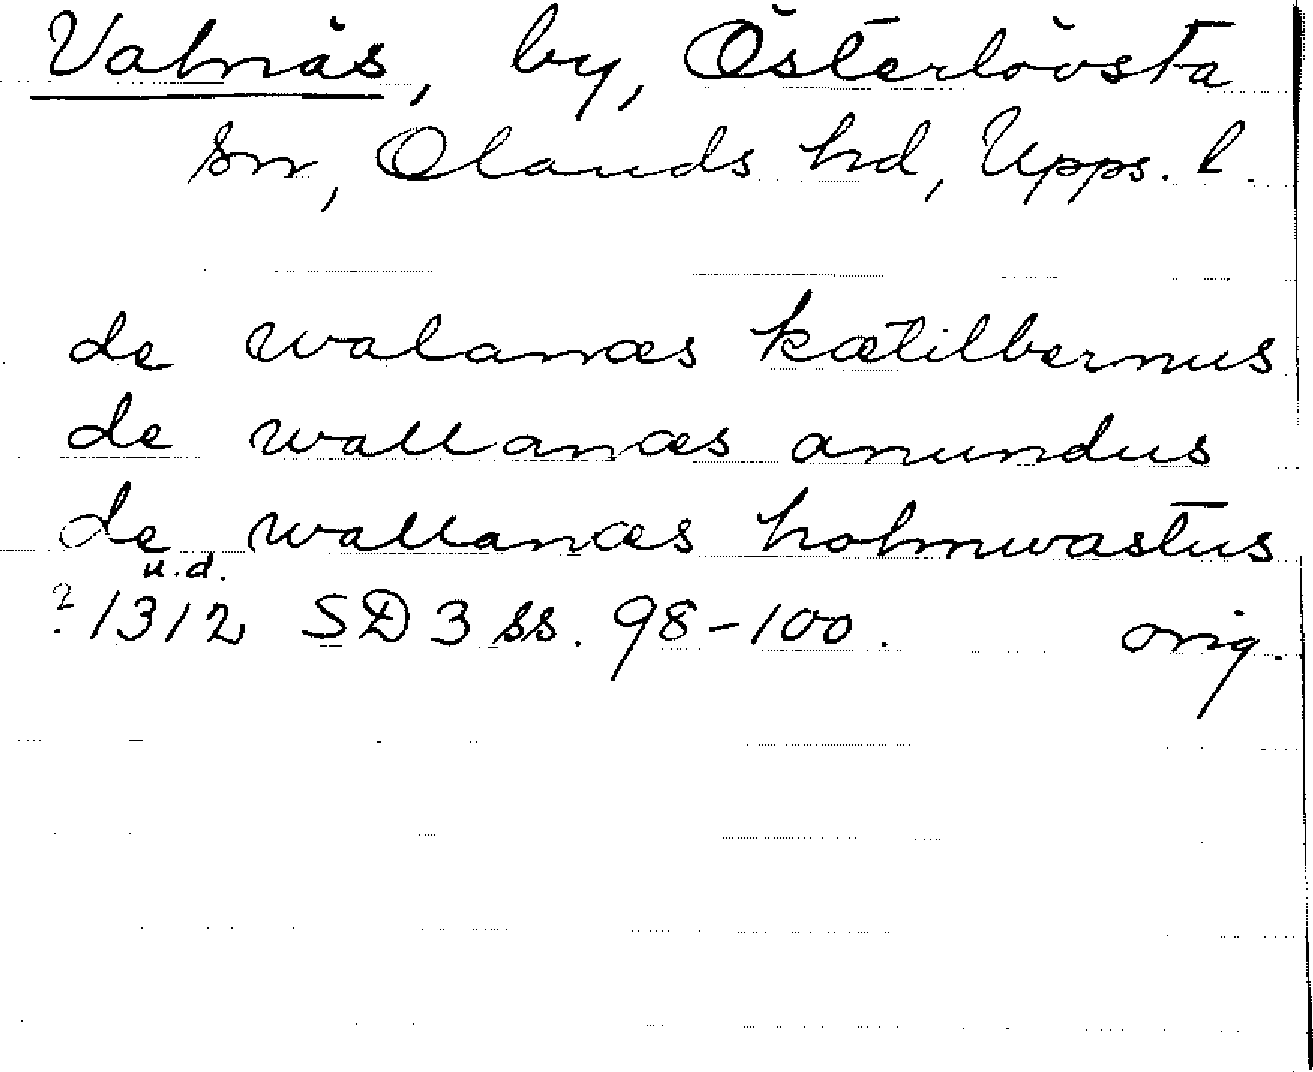 Valnäs, by, Österlövsta
sn, Olands hd, Upps. l.
de walanæs kætilbernus
de wallanæs anundus
de wallanæs holmwastus
u.d.
? 1312 SD 3 ss. 98-100. orig.